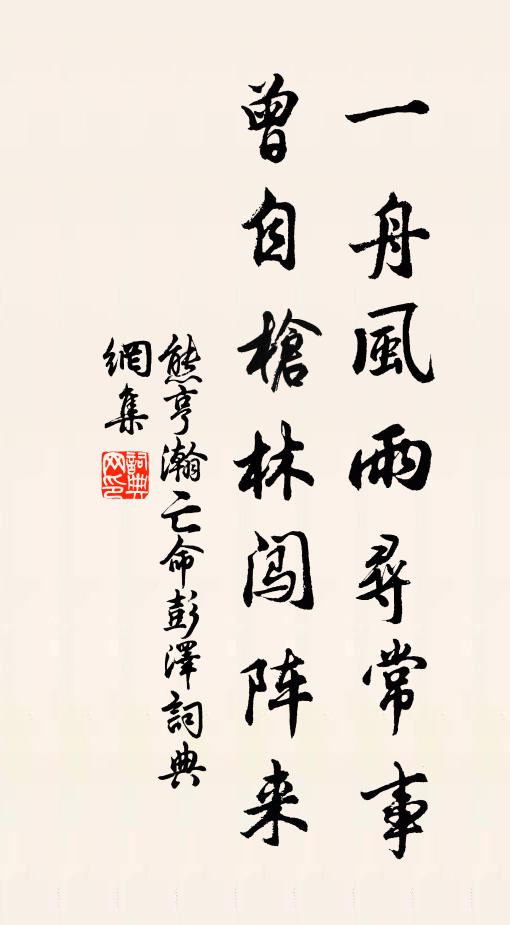 一舟風雨尋常事
曾自槍林闯阵来
熊亨瀚亡命彭澤詞典
網集
詞典
网印